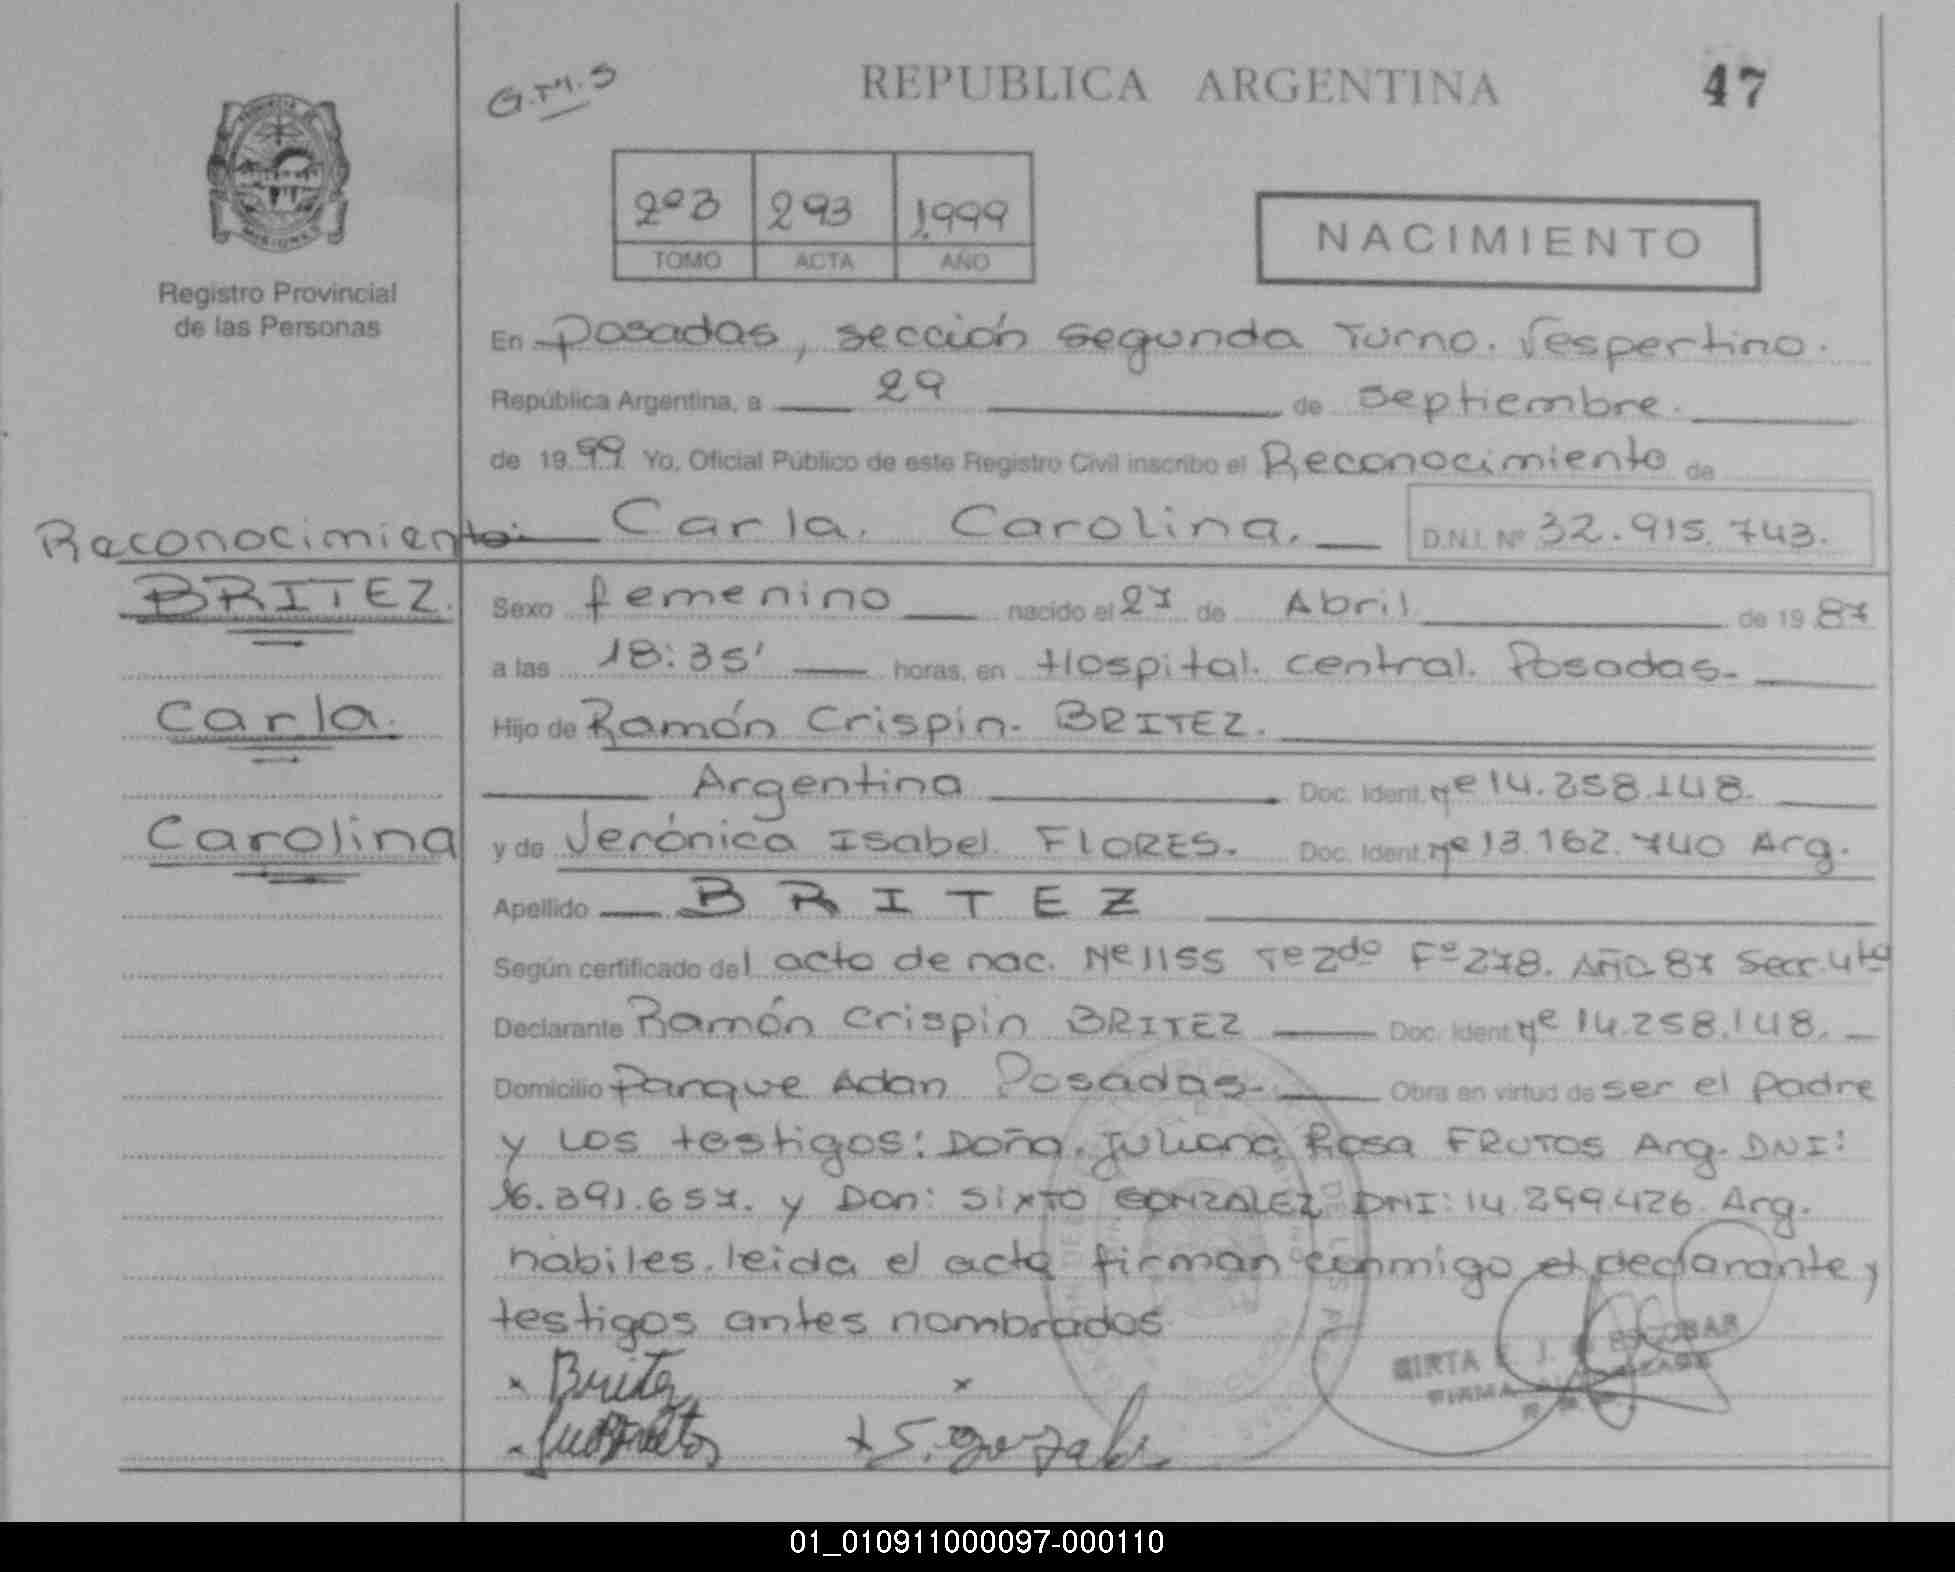 G.M.S
REPUBLICA ARGENTINA
47
203 293 1.999
TOMO ACTA AÑO
NACIMIENTO
PROVINCIA
MISIONES
Registro Provincial
de las Personas
En Posadas, sección segunda Turno. Vespertino.
República Argentina, a 29 de septiembre.
de 19 99 Yo, Oficial Público de este Registro Civil inscribo el Reconocimiento de
Reconocimiento: Carla. Carolina. D.N.I. Nº 32.915.743.
BRITEZ.
Carla.
Carolina
Sexo femenino nacido el 27 de Abril de 19 87
a las 18:35' horas, en Hospital. central. Posadas.
Hijo de Ramón Crispin. BRITEZ.
Argentina Doc. Ident. Nº 14.258.148.
y de Verónica Isabel FLORES. Doc. Ident. Nº 13.162.740 Arg.
Apellido BRITEZ
Según certificado del acto de nac. Nº 1155 Tº 2do Fº 278. AÑO 87 Secc. 4ta
Declarante Ramón Crispin BRITEZ Doc. Ident Nº 14.258.148.
Domicilio Parque Adan Posadas. Obra en virtud de ser el padre
y los testigos: Doña. Juliana Rosa FRUTOS Arg. DNI:
16.391.657. y Don: Sixto GONZALEZ DNI: 14.299.426. Arg.
habiles. leida el acta firman conmigo el declarante y
testigos antes nombrados
x Britez x
x S. Gonzalez
MIRTA ESCOBAR
FIRMA
01_010911000097-000110